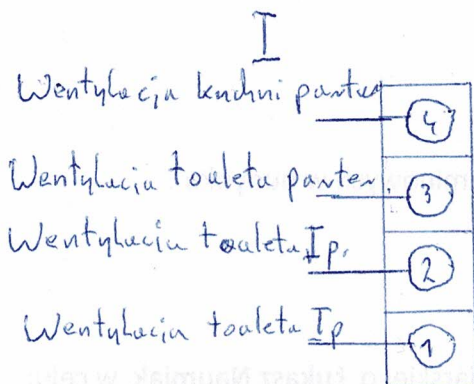 I
Wentylacja kuchni parter
4
Wentylacja toaleta parter.
3
Wentylacja toaleta Ip.
2
Wentylacja toaleta Ip
1